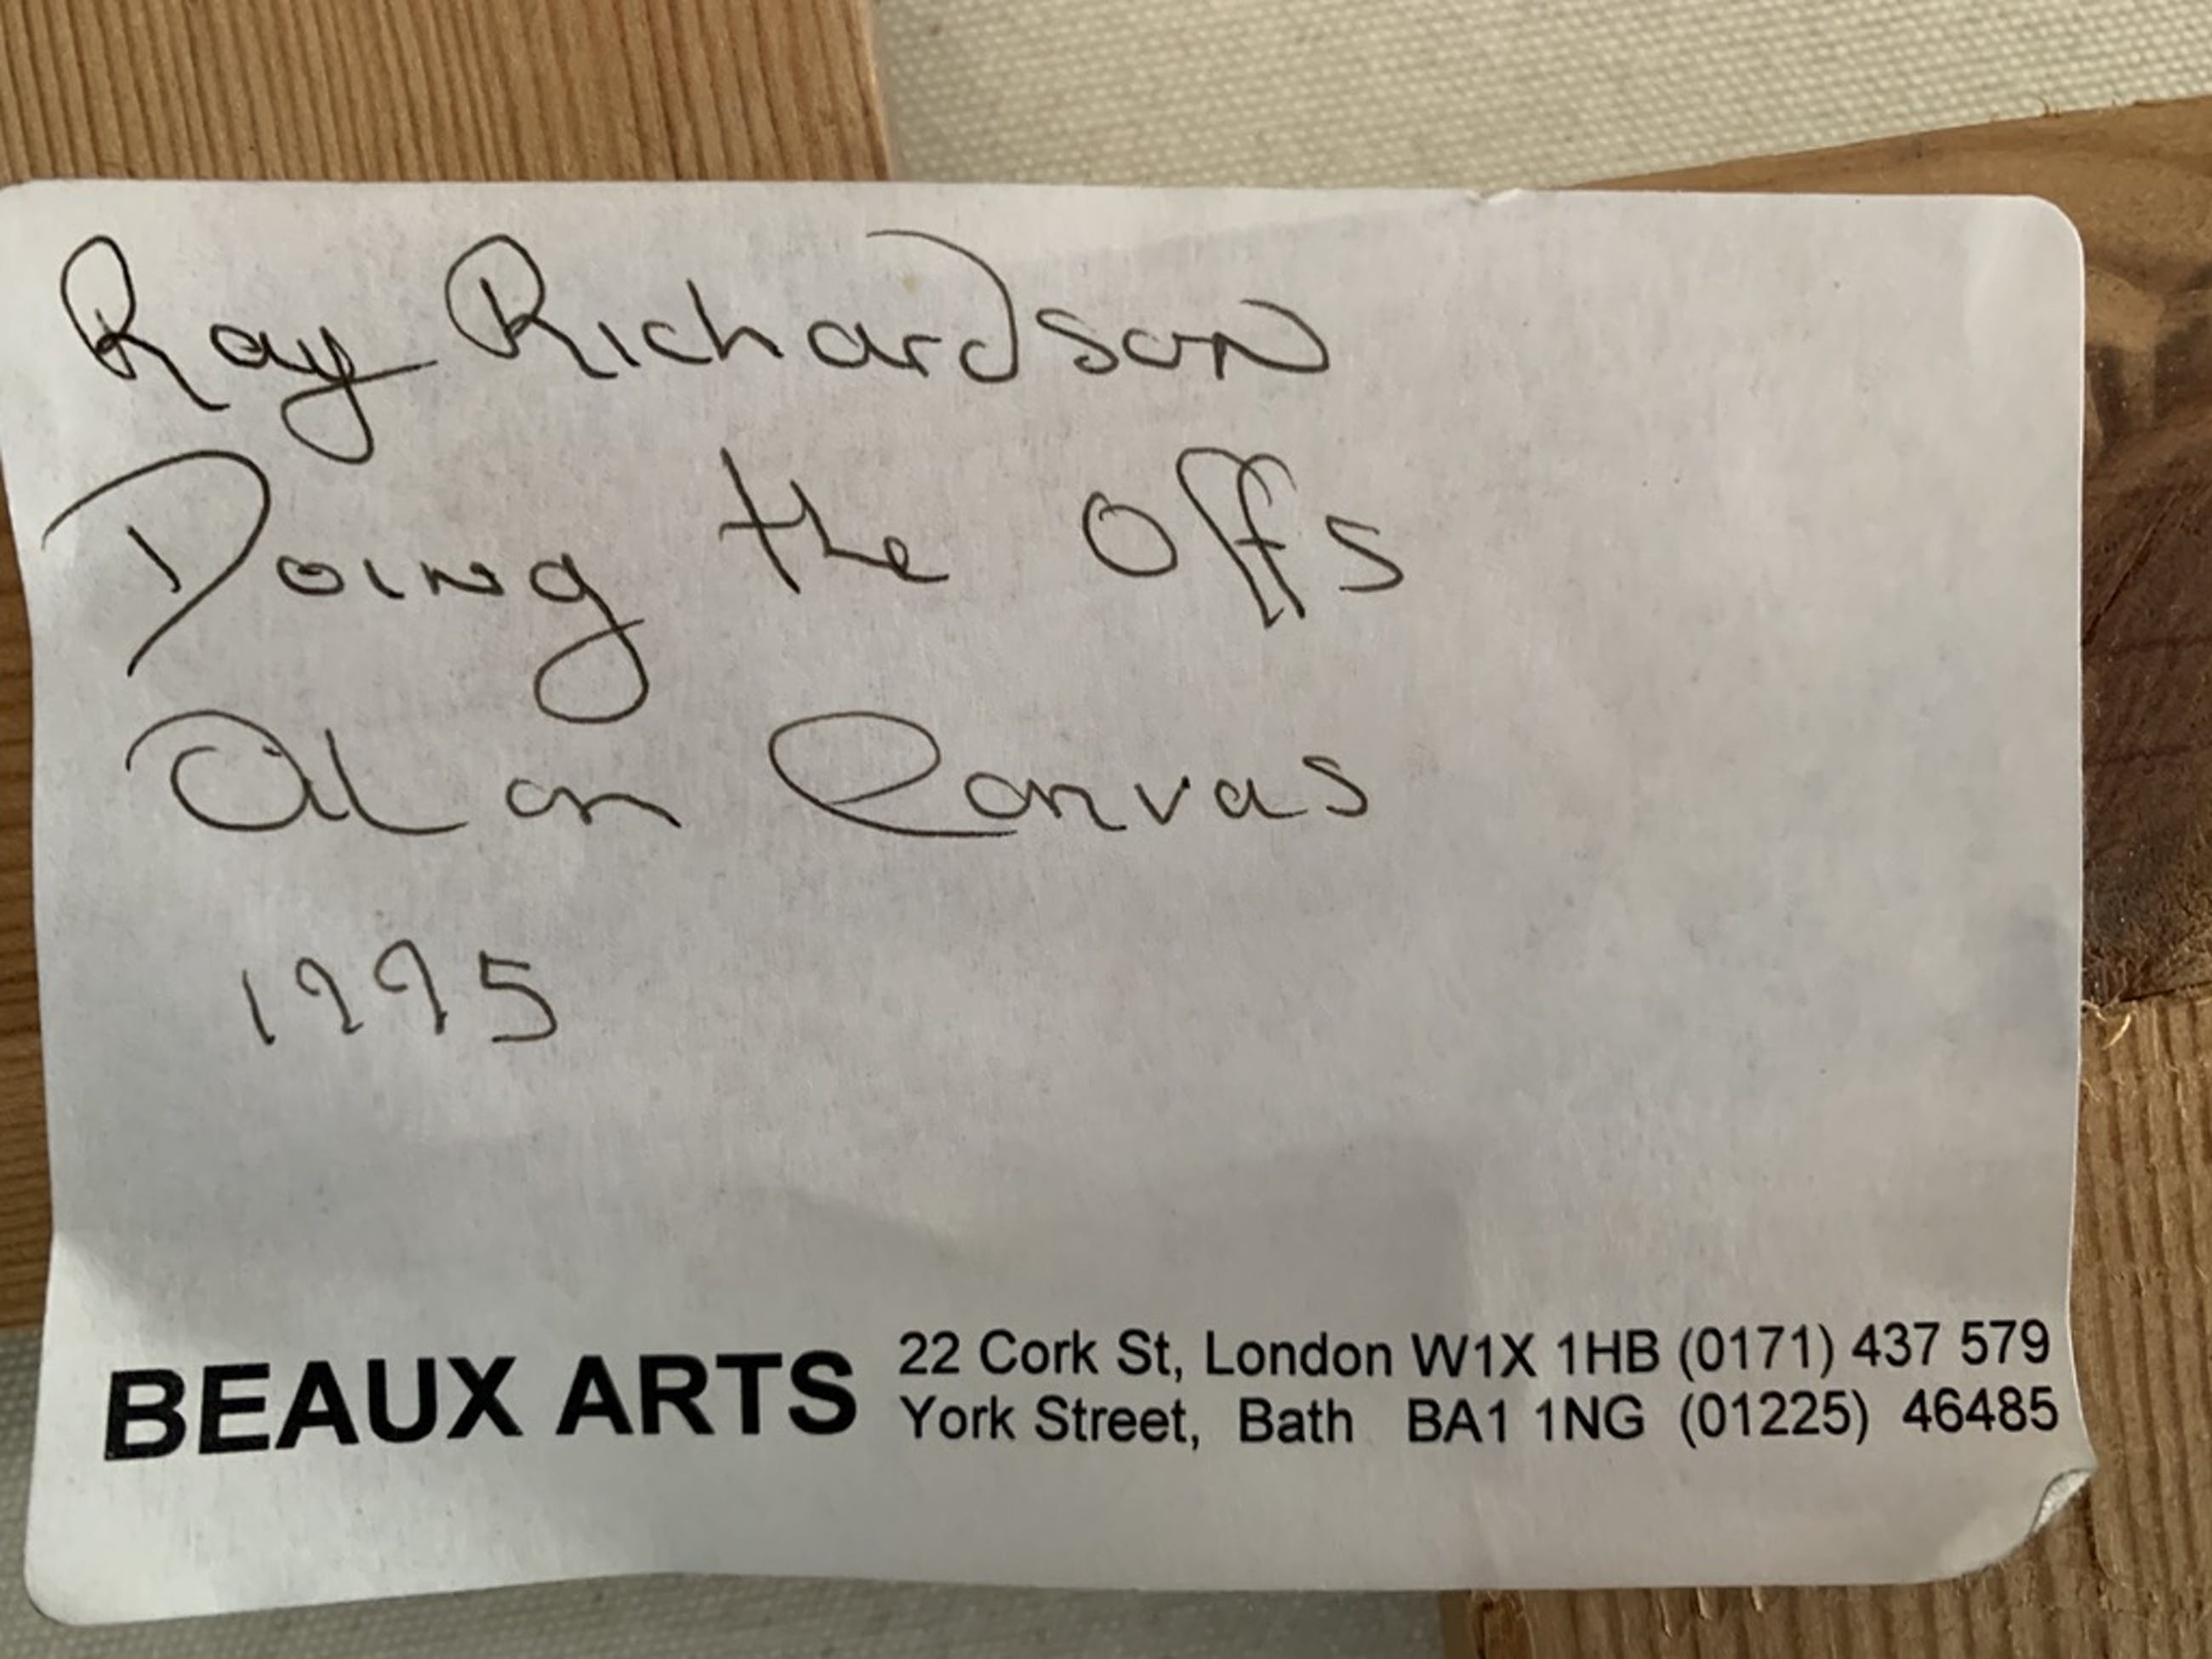 Ray Richardson
Doing the Offs
Oil on Canvas
1995
BEAUX ARTS
22 Cork St, London W1X 1HB (0171) 437 579
York Street, Bath BA1 1NG (01225) 46485